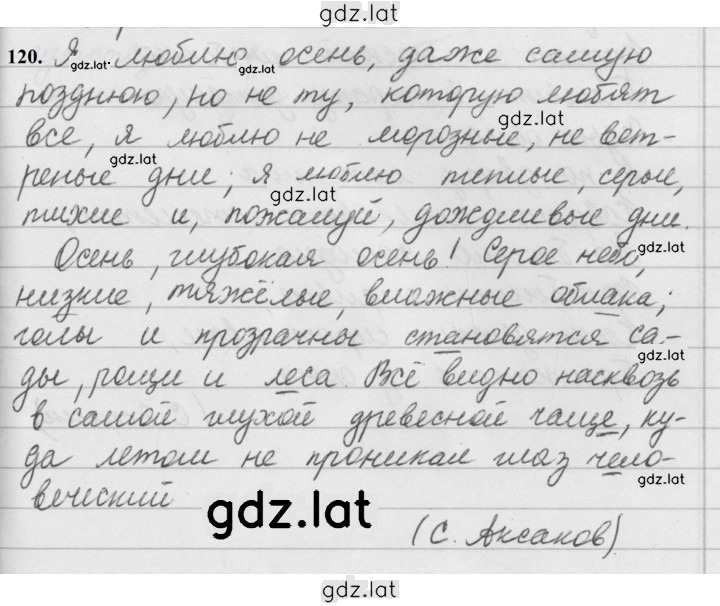 gdz.lat
120. Я gdz.lat люблю gdz.lat осень, даже самую
позднюю, но не ту, которую любят
gdz.lat
все, я люблю не морозные, не вет-
gdz.lat
реные дни; я люблю теплые, серые,
gdz.lat
тихие и, пожалуй, дождливые дни.
Осень, глубокая осень! Серое небо,
gdz.lat
низкие, тяжёлые, влажные облака;
голы и прозрачны становятся са-
gdz.lat
ды, рощи и леса Всё видно насквозь
в самой глухой древесной чаще, ку-
да летом не проникал глаз чело-
gdz.lat
веческий
gdz.lat
(С. Аксаков).
gdz.lat